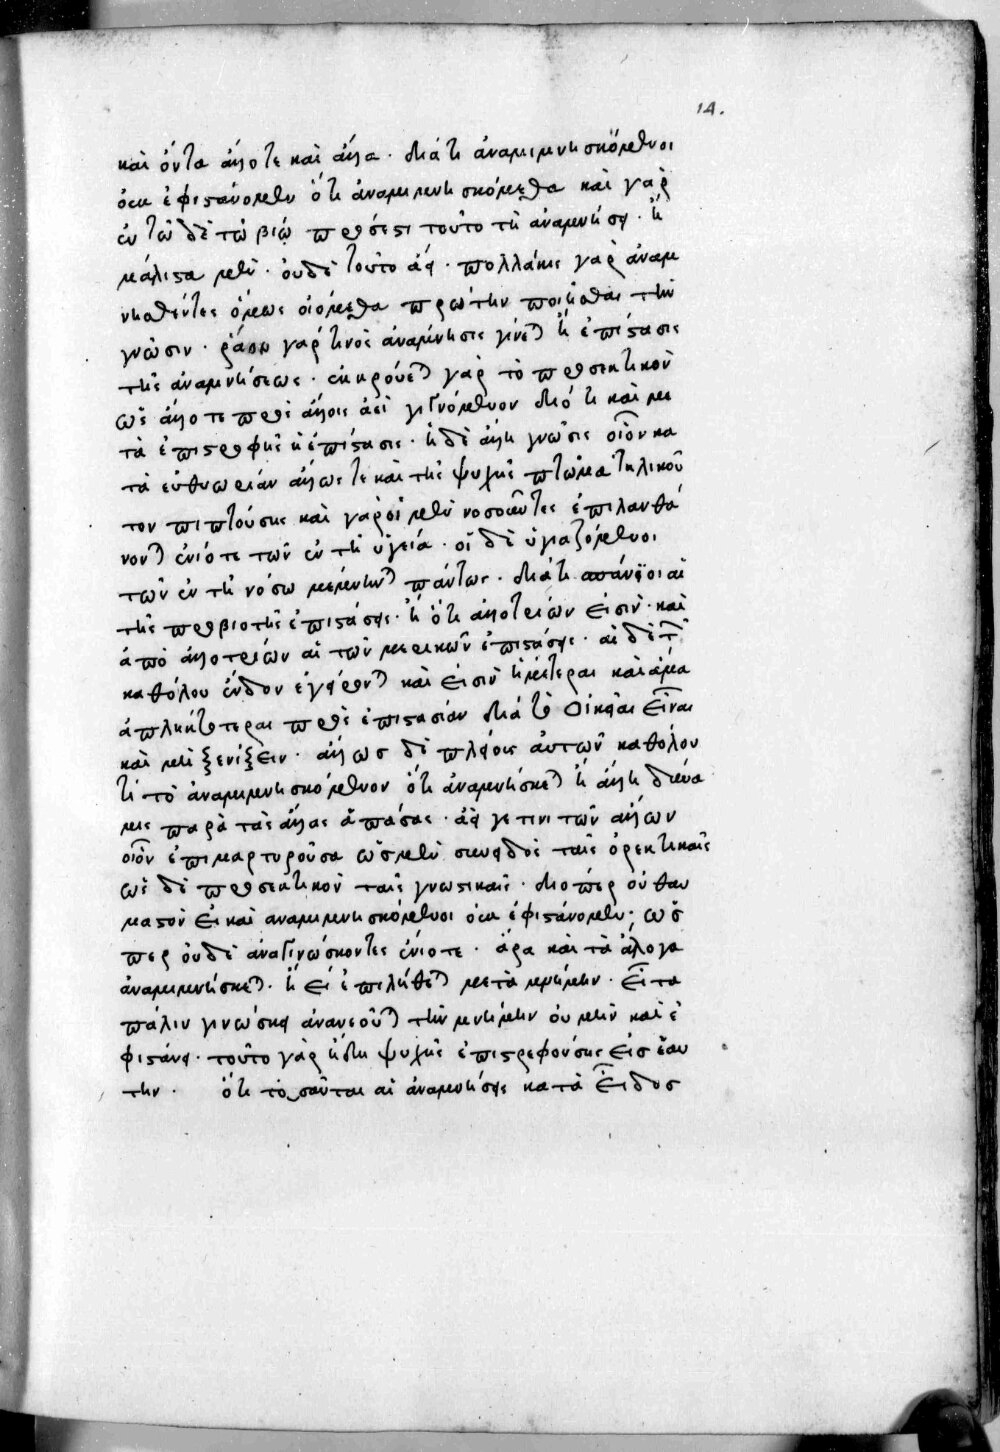 14.
καὶ ὄντα ἄλλοτε καὶ ἄλλα · διὰ τί ἀναμιμνησκόμενοι
οὐκ ἐφιστάνομεν ὅτι ἀναμιμνησκόμεθα καὶ γὰρ
ἐν τῶδε τῶ βίῳ πρόσεστι τοῦτο τῆ ἀναμνήσει · ἢ
μάλιστα μὲν · οὐδὲ τοῦτο ἀεί · πολλάκις γὰρ ἀναμ
νησθέντες ὅμως οἰόμεθα πρώτην ποιεῖσθαι τὴν
γνῶσιν · γάρ τινος ἀνάμνησις γίνεται ἢ ἐπίστασις
τῆς ἀναμνήσεως · ἐκκρούεται γὰρ τὸ προσεκτικὸν
ὡς ἄλλοτε πρὸς ἄλλοις ἀεὶ γιγνόμενον διότι καὶ με
τὰ ἐπιστροφῆς ἡ ἐπίστασις · ἡ δὲ ἄλλη γνῶσις οἷον κα
τὰ εὐθυωρίαν ἄλλως τε καὶ τῆς ψυχῆς πτῶμα τηλικοῦ
τον πιπτούσης καὶ γὰρ οἱ μὲν νοσοῦντες ἐπιλανθά
νονται ἐνίοτε τῶν ἐν τῆ ὑγεία · οἱ δὲ ὑγιαζόμενοι
τῶν ἐν τῆ νόσω μέμνηνται πάντως · διὰ τί σπάνιοι αἱ
τῆς προβιοτῆς ἐπιστάσεις · ἢ ὅτι ἀλλοτρίων εἰσὶν · καὶ
ἀπὸ ἀλλοτρίων αἱ τῶν μερικῶν ἐπιστάσεις · αἱ δὲ τῶν
καθόλου ἔνδον ἐγείρονται καὶ εἰσὶν ἡμέτεραι καὶ ἅμα
ἀπληκτότεραι πρὸς ἐπιστασίαν διὰ τὸ οἰκεῖαι εἶναι
καὶ μὴ ξενίζειν · ἄλλως δὲ πλήρεις αὐτῶν καθόλου
τί τὸ ἀναμιμνησκόμενον ὅτι ἀναμνήσκεται ἢ ἄλλη δύνα
μις παρὰ τὰς ἄλλας ἁπάσας · ἀεί γε τινι τῶν ἄλλων
οἷον ἐπιμαρτυροῦσα ὡς μὲν συνειδὸς ταῖς ὀρεκτικαῖς
ὡς δὲ προσεκτικὸν ταῖς γνωστικαῖς · διόπερ οὐ θαυ
μαστὸν εἰ καὶ αναμιμνησκόμενοι οὐκ ἐφιστάνομεν · ὥσ
περ οὐδὲ ἀναγινώσκοντες ἐνίοτε · ἆρα καὶ τὰ ἄλογα
ἀναμιμνήσκεται · ἢ εἰ ἐπιλήθεται μετὰ μνήμην · εἶτα
πάλιν γινώσκει ἀνανεοῦται τὴν μνήμην οὐ μὴν καὶ ἐ
φιστάνει · τοῦτο γὰρ ἤδη ψυχῆς ἐπιστρεφούσης εἰς ἑαυ
την · ὅτι τοσαῦται αἱ ἀναμνήσεις κατὰ εἶδος